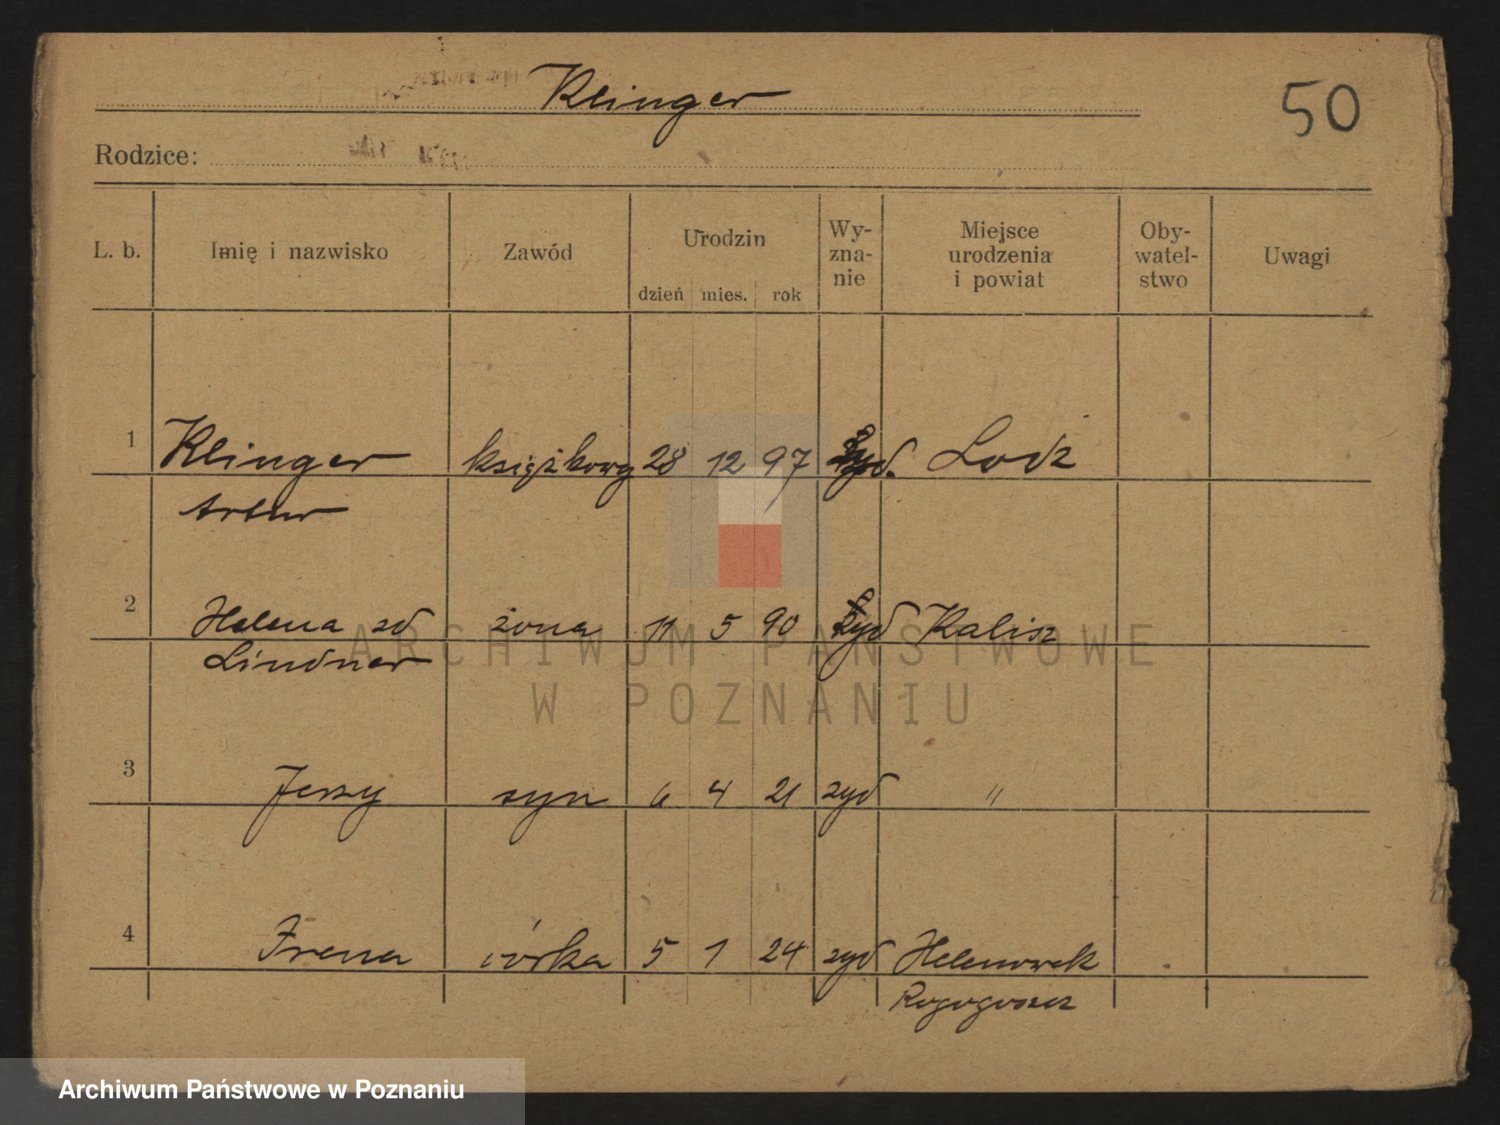 Klinger
50
Rodzice:
L. b. Imię i nazwisko Zawód Urodzin Wy- Miejsce Oby- Uwagi
zna- urodzenia watel-
dzień mies. rok nie i powiat stwo
1 Klinger książkowy 28 12 97 żyd. Lodz
Artur
2 Helena zd żona 11 5 90 żyd Kalisz
Lindner
ARCHIWUM PAŃSTWOWE
W POZNANIU
3 Jerzy syn 6 4 21 zyd "
4 Irena córka 5 1 24 zyd Helenowek
Rogogosz
Archiwum Państwowe w Poznaniu